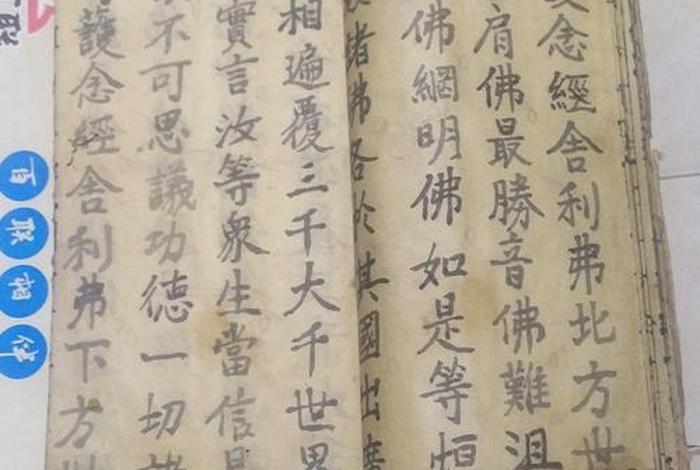 念經舍利弗北方世
肩佛最勝音佛難沮
佛網明佛如是等恒
諸佛各於其國出廣
相遍覆三千大千世界
實言汝等衆生當信是
不可思議功德一切諸
護念經舍利弗下方世
百联相伴